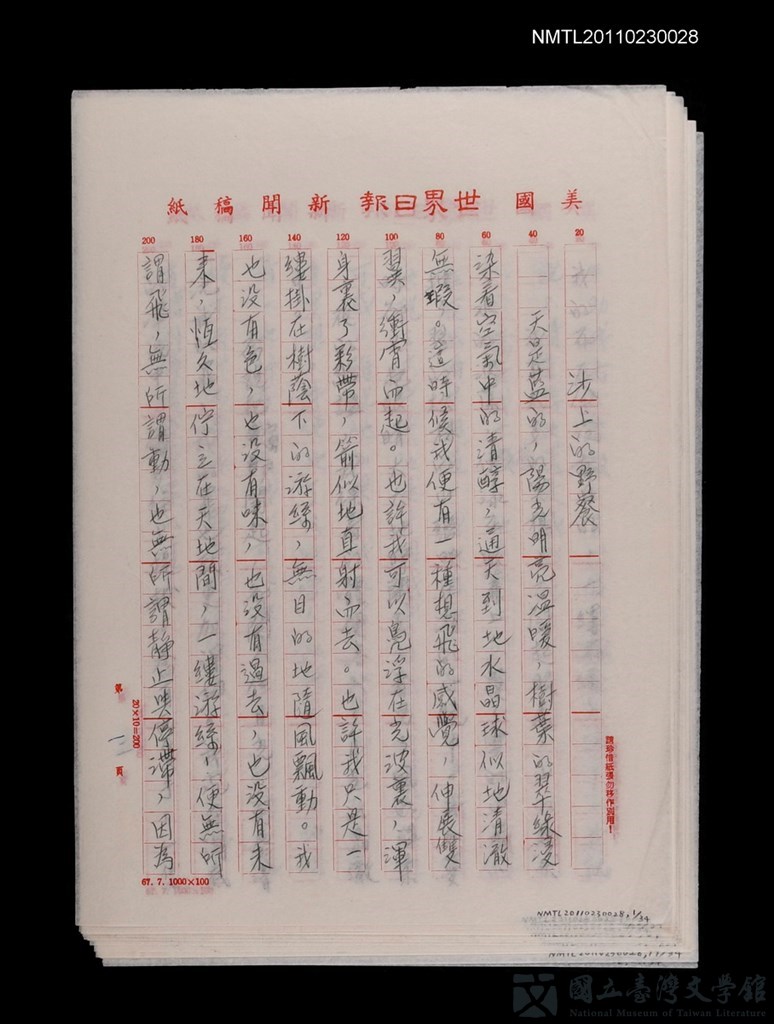 NMTL20110230028
美國世界日報新聞稿紙
20
40
60
80
100
120
140
160
180
200
沙上的野餐
天是藍的，陽光明亮溫暖，樹葉的翠綠浸
染着空氣中的清醇，通天到地水晶球似地清澈
無瑕。這時候我便有一種想飛的感覺，伸展雙
翼，衝霄而起。也許我可以鳧浮在光波裏，渾
身裹了彩帶，箭似地直射而去。也許我只是一
縷掛在樹蔭下的游絲，無目的地隨風飄動。我
也没有色，也没有味，也没有過去，也没有未
來，恆久地佇立在天地間，一縷游絲，便無所
謂飛，無所謂動，也無所謂静止與停滯，因為
請珍惜紙張勿移作別用！
20×10=200
第一頁
67.7.1000×100
NMTL20110230028,1/34
國立臺灣文學館
National Museum of Taiwan Literature